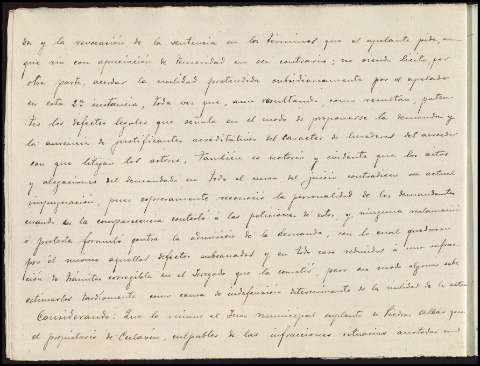 da y la revocación de la sentencia en los términos que el apelante pide, aun
que no con apreciación de temeridad en ser contrario; no siendo lícito, por
otra parte, acordar la nulidad pretendida subsidiariamente por el apelado
en esta 2ª instancia, toda vez que, aun resultando, como resultan, paten-
tes los defectos legales que señala en el modo de proponerse la demanda y
la ausencia de justificantes acreditativos del caracter de herederos del acreedor
con que litigan los actores, también es notorio y evidente que los actos
y alegaciones del demandado en todo el curso del juicio contradicen su actual
impugnación, pues expresamente reconoció la personalidad de los demandantes
cuando en la comparecencia contestó á las peticiones de estos, y, ninguna reclamación
ó protesta formuló contra la admisión de la demanda, con lo cual quedaron
por él mismo aquellos defectos subsanados y en todo caso reducidos á una infrac-
ción de trámites corregible en el Juzgado que la cometió, pero en modo alguno cabe
estimarlos tardíamente como causa de indefensión determinante de la nulidad de lo actua
Considerando: Que lo mismo el Juez municipal suplente de Piedras albas que
el propietario de Ceclavín, culpables de las infracciones rituarias anotadas en